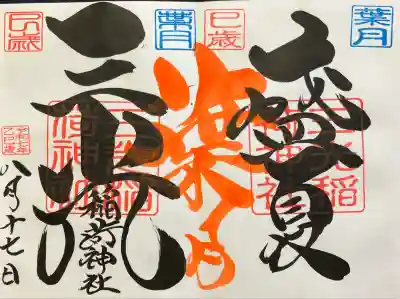 葉月
盛夏
三光稲
荷神社
巳歳
葉月
葉月
三光
稲荷神社
三光稲
荷神社
巳歳
八月十七日